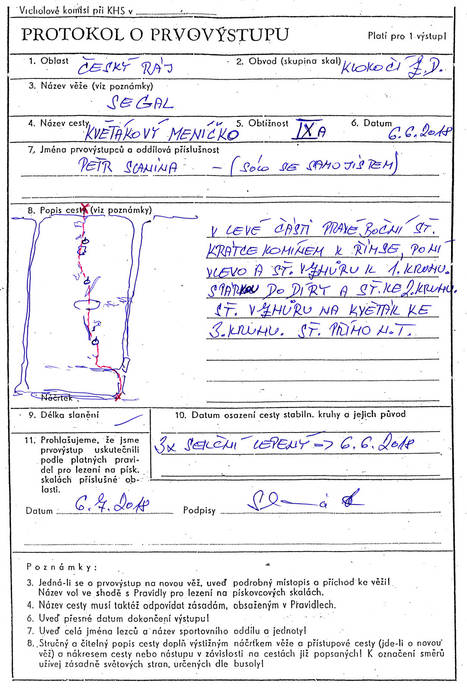 Vrcholové komisi při KHS v
PROTOKOL O PRVOVÝSTUPU Platí pro 1 výstup!
1. Oblast ČESKÝ RÁJ 2. Obvod (skupina skal) KLOKOČÍ Z.D.
3. Název věže (viz poznámky)
SEGAL
4. Název cesty KVĚŤÁKOVÝ MENÍČKO 5. Obtížnost IXA 6. Datum 6.6.2018
7. Jména prvovýstupců a oddílová příslušnost
PETR SLANINA – (SÓLO SE SAMOJIŠTĚM)
8. Popis cesty (viz poznámky)
V LEVÉ ČÁSTI PRAVÉ BOČNÍ ST.
KRÁTCE KOMÍNEM K ŘÍMSE, PO NÍ
VLEVO A ST. VZHŮRU K 1. KRUHU.
SPÁRKOU DO DÍRY A ST. KE 2. KRUHU.
ST. VZHŮRU NA KVĚŤÁK KE
3. KRUHU. ST. PŘÍMO N.T.
Náčrtek
9. Délka slanění
10. Datum osazení cesty stabiln. kruhy a jejich původ
3x SEKČNÍ LEPENÝ => 6.6.2018
11. Prohlašujeme, že jsme
prvovýstup uskutečnili
podle platných pravi-
del pro lezení na písk.
skalách příslušné ob-
lasti.
Datum 6.7.2018 Podpisy
Poznámky:
3. Jedná-li se o prvovýstup na novou věž, uveď podrobný místopis a příchod ke věži!
Název vol ve shodě s Pravidly pro lezení na pískovcových skalách.
4. Název cesty musí taktéž odpovídat zásadám, obsaženým v Pravidlech.
6. Uveď přesné datum dokončení výstupu!
7. Uveď celá jména lezců a název sportovního oddílu a jednoty!
8. Stručný a čitelný popis cesty doplň výstižným náčrtkem věže a přístupové cesty (jde-li o novou
věž) a nákresem cesty nebo nástupu v závislosti na cestách již popsaných! K označení směrů
užívej zásadně světových stran, určených dle busoly!